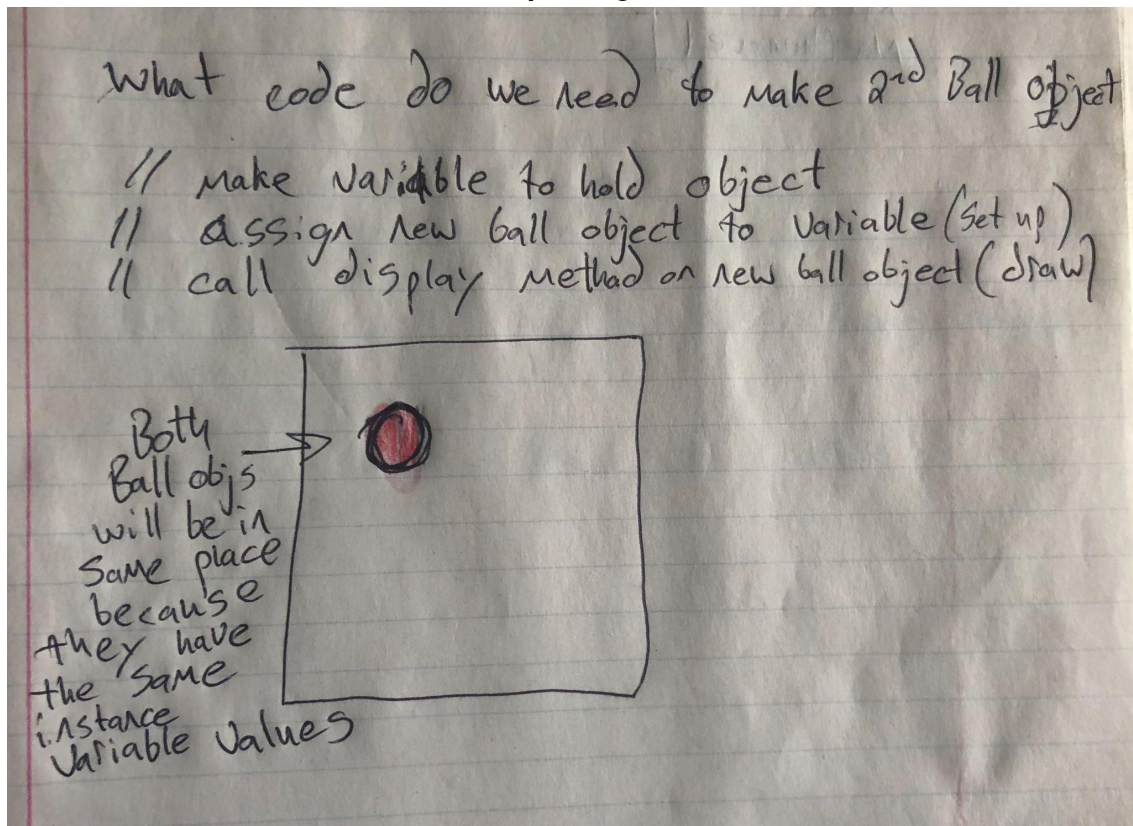 What code do we need to make 2nd Ball object
// make variable to hold object
// assign new ball object to variable (set up)
// call display method on new ball object (draw)
Both
Ball objs
will be in
same place
because
they have
the same
instance
variable values